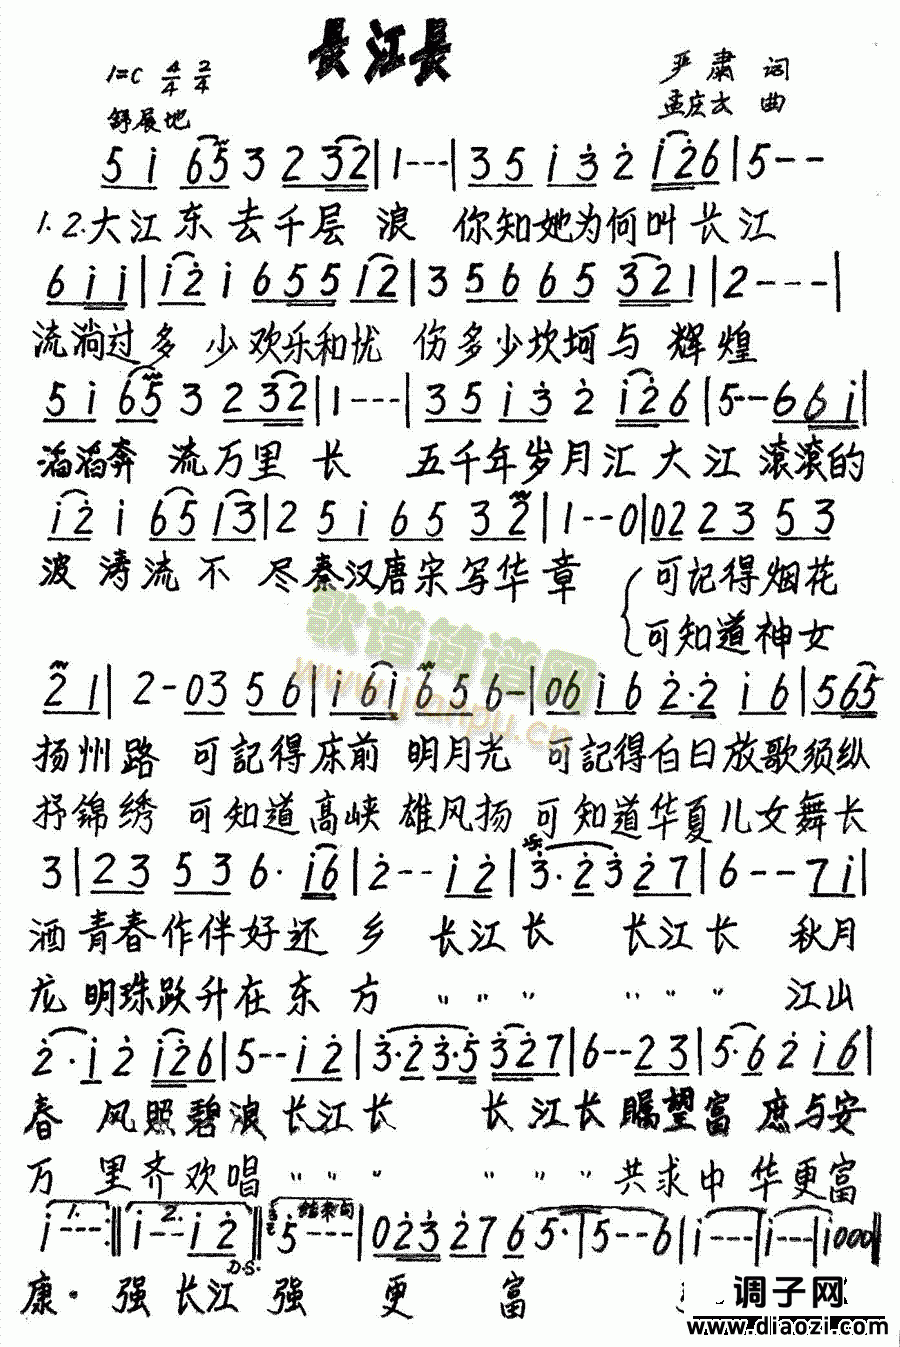 長江長
1=C 4/4 2/4
严肃 词
舒展地
孟庆云 曲
5 i 6 5 3 2 3 2 | 1 - - - | 3 5 i 3 2 i 2 6 | 5 - -
1.2.大江东去千层浪 你知她为何叫长江
6 i i | i 2 i 6 5 5 i 2 | 3 5 6 6 5 3 2 1 | 2 - - - |
流淌过多少欢乐和忧伤多少坎坷与辉煌
5 i 6 5 3 2 3 2 | 1 - - - | 3 5 i 3 2 i 2 6 | 5 - - 6 6 i |
滔滔奔流万里长 五千年岁月汇大江滚滚的
i 2 i 6 5 i 3 | 2 5 i 6 5 3 2 | 1 - - 0 | 0 2 2 3 5 3
波涛流不尽秦汉唐宋写华章 可記得烟花
可知道神女
2 1 | 2 - 0 3 5 6 | i 6 i 6 5 6 - | 0 6 i 6 2 · 2 i 6 | 5 6 5
扬州路 可記得床前明月光 可記得白日放歌须纵
抒锦绣 可知道高峡雄风扬 可知道华夏儿女舞长
3 | 2 3 5 3 6 · i 6 | 2 - - i 2 | 3 · 2 3 2 7 | 6 - - 7 i |
酒青春作伴好还乡 长江长 长江长 秋月
龙明珠跃升在东方 〃 〃 〃 〃 〃 〃 江山
2 · i 2 i 2 6 | 5 - - i 2 | 3 · 2 3 · 5 3 2 7 | 6 - - 2 3 | 5 · 6 2 i 6 |
春风照碧浪长江长 长江长瞩望富庶与安
万里齐欢唱 〃 〃 〃 〃 〃 〃 共求中华更富
1. 2. 结束句
i - - - :‖ i - - i 2 ‖ 5 - - - | 0 2 3 2 7 6 5 · | 5 - - 6 | i - - | i - - | i 0 0 0 ‖
D.S.
康·强长江强 更 富
歌谱简谱网
www.jianpu.cn
调子网
www.diaozi.com